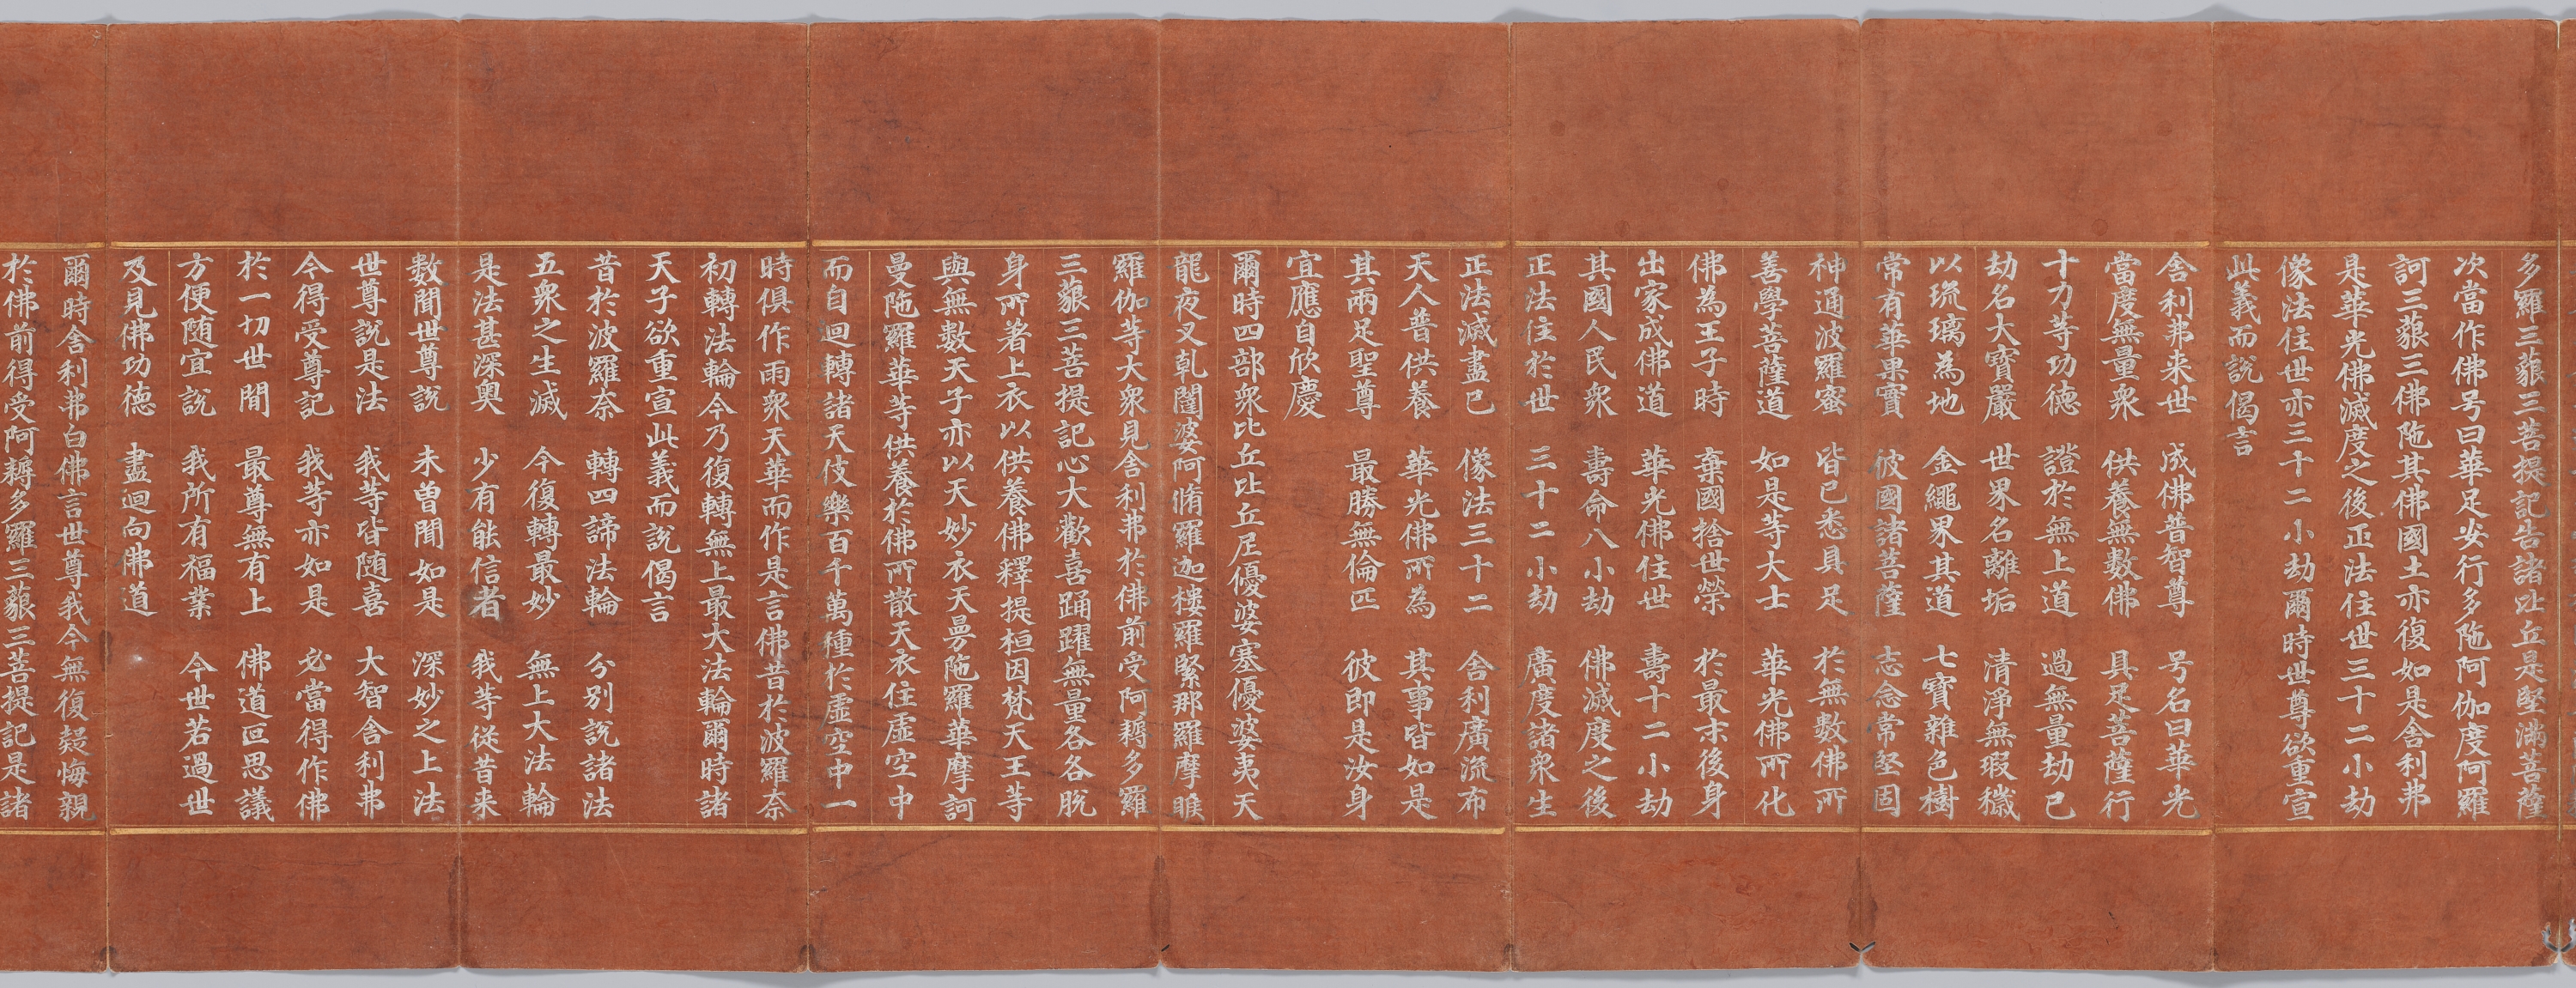 多羅三藐三菩提記告諸比丘是堅滿菩薩
次當作佛号曰華足安行多陁阿伽度阿羅
訶三藐三佛陁其佛國土亦復如是舍利弗
是華光佛滅度之後正法住世三十二小劫
像法住世亦三十二小劫爾時世尊欲重宣
此義而說偈言
舍利弗来世　成佛普智尊　号名曰華光
當度無量衆　供養無數佛　具足菩薩行
十力等功德　證於無上道　過無量劫已
劫名大寶嚴　世界名離垢　清淨無瑕穢
以琉璃為地　金繩界其道　七寶雜色樹
常有華果實　彼國諸菩薩　志念常堅固
神通波羅蜜　皆已悉具足　於無數佛所
善學菩薩道　如是等大士　華光佛所化
佛為王子時　棄國捨世榮　於最末後身
出家成佛道　華光佛住世　壽十二小劫
其國人民衆　壽命八小劫　佛滅度之後
正法住於世　三十二小劫　廣度諸衆生
正法滅盡已　像法三十二　舍利廣流布
天人普供養　華光佛所為　其事皆如是
其兩足聖尊　最勝無倫匹　彼即是汝身
宜應自欣慶
爾時四部衆比丘比丘尼優婆塞優婆夷天
龍夜叉乹闥婆阿脩羅迦樓羅緊那羅摩睺
羅伽等大衆見舍利弗於佛前受阿耨多羅
三藐三菩提記心大歡喜踊躍無量各各脫
身所著上衣以供養佛釋提桓因梵天王等
與無數天子亦以天妙衣天曼陁羅華摩訶
曼陁羅華等供養於佛所散天衣住虛空中
而自迴轉諸天伎樂百千萬種於虛空中一
時俱作雨衆天華而作是言佛昔於波羅奈
初轉法輪今乃復轉無上最大法輪爾時諸
天子欲重宣此義而說偈言
昔於波羅奈　轉四諦法輪　分別說諸法
五衆之生滅　今復轉最妙　無上大法輪
是法甚深奧　少有能信者　我等從昔来
數聞世尊說　未曾聞如是　深妙之上法
世尊說是法　我等皆随喜　大智舍利弗
今得受尊記　我等亦如是　必當得作佛
於一切世間　最尊無有上　佛道叵思議
方便随宜說　我所有福業　今世若過世
及見佛功德　盡迴向佛道
爾時舍利弗白佛言世尊我今無復疑悔親
於佛前得受阿耨多羅三藐三菩提記是諸